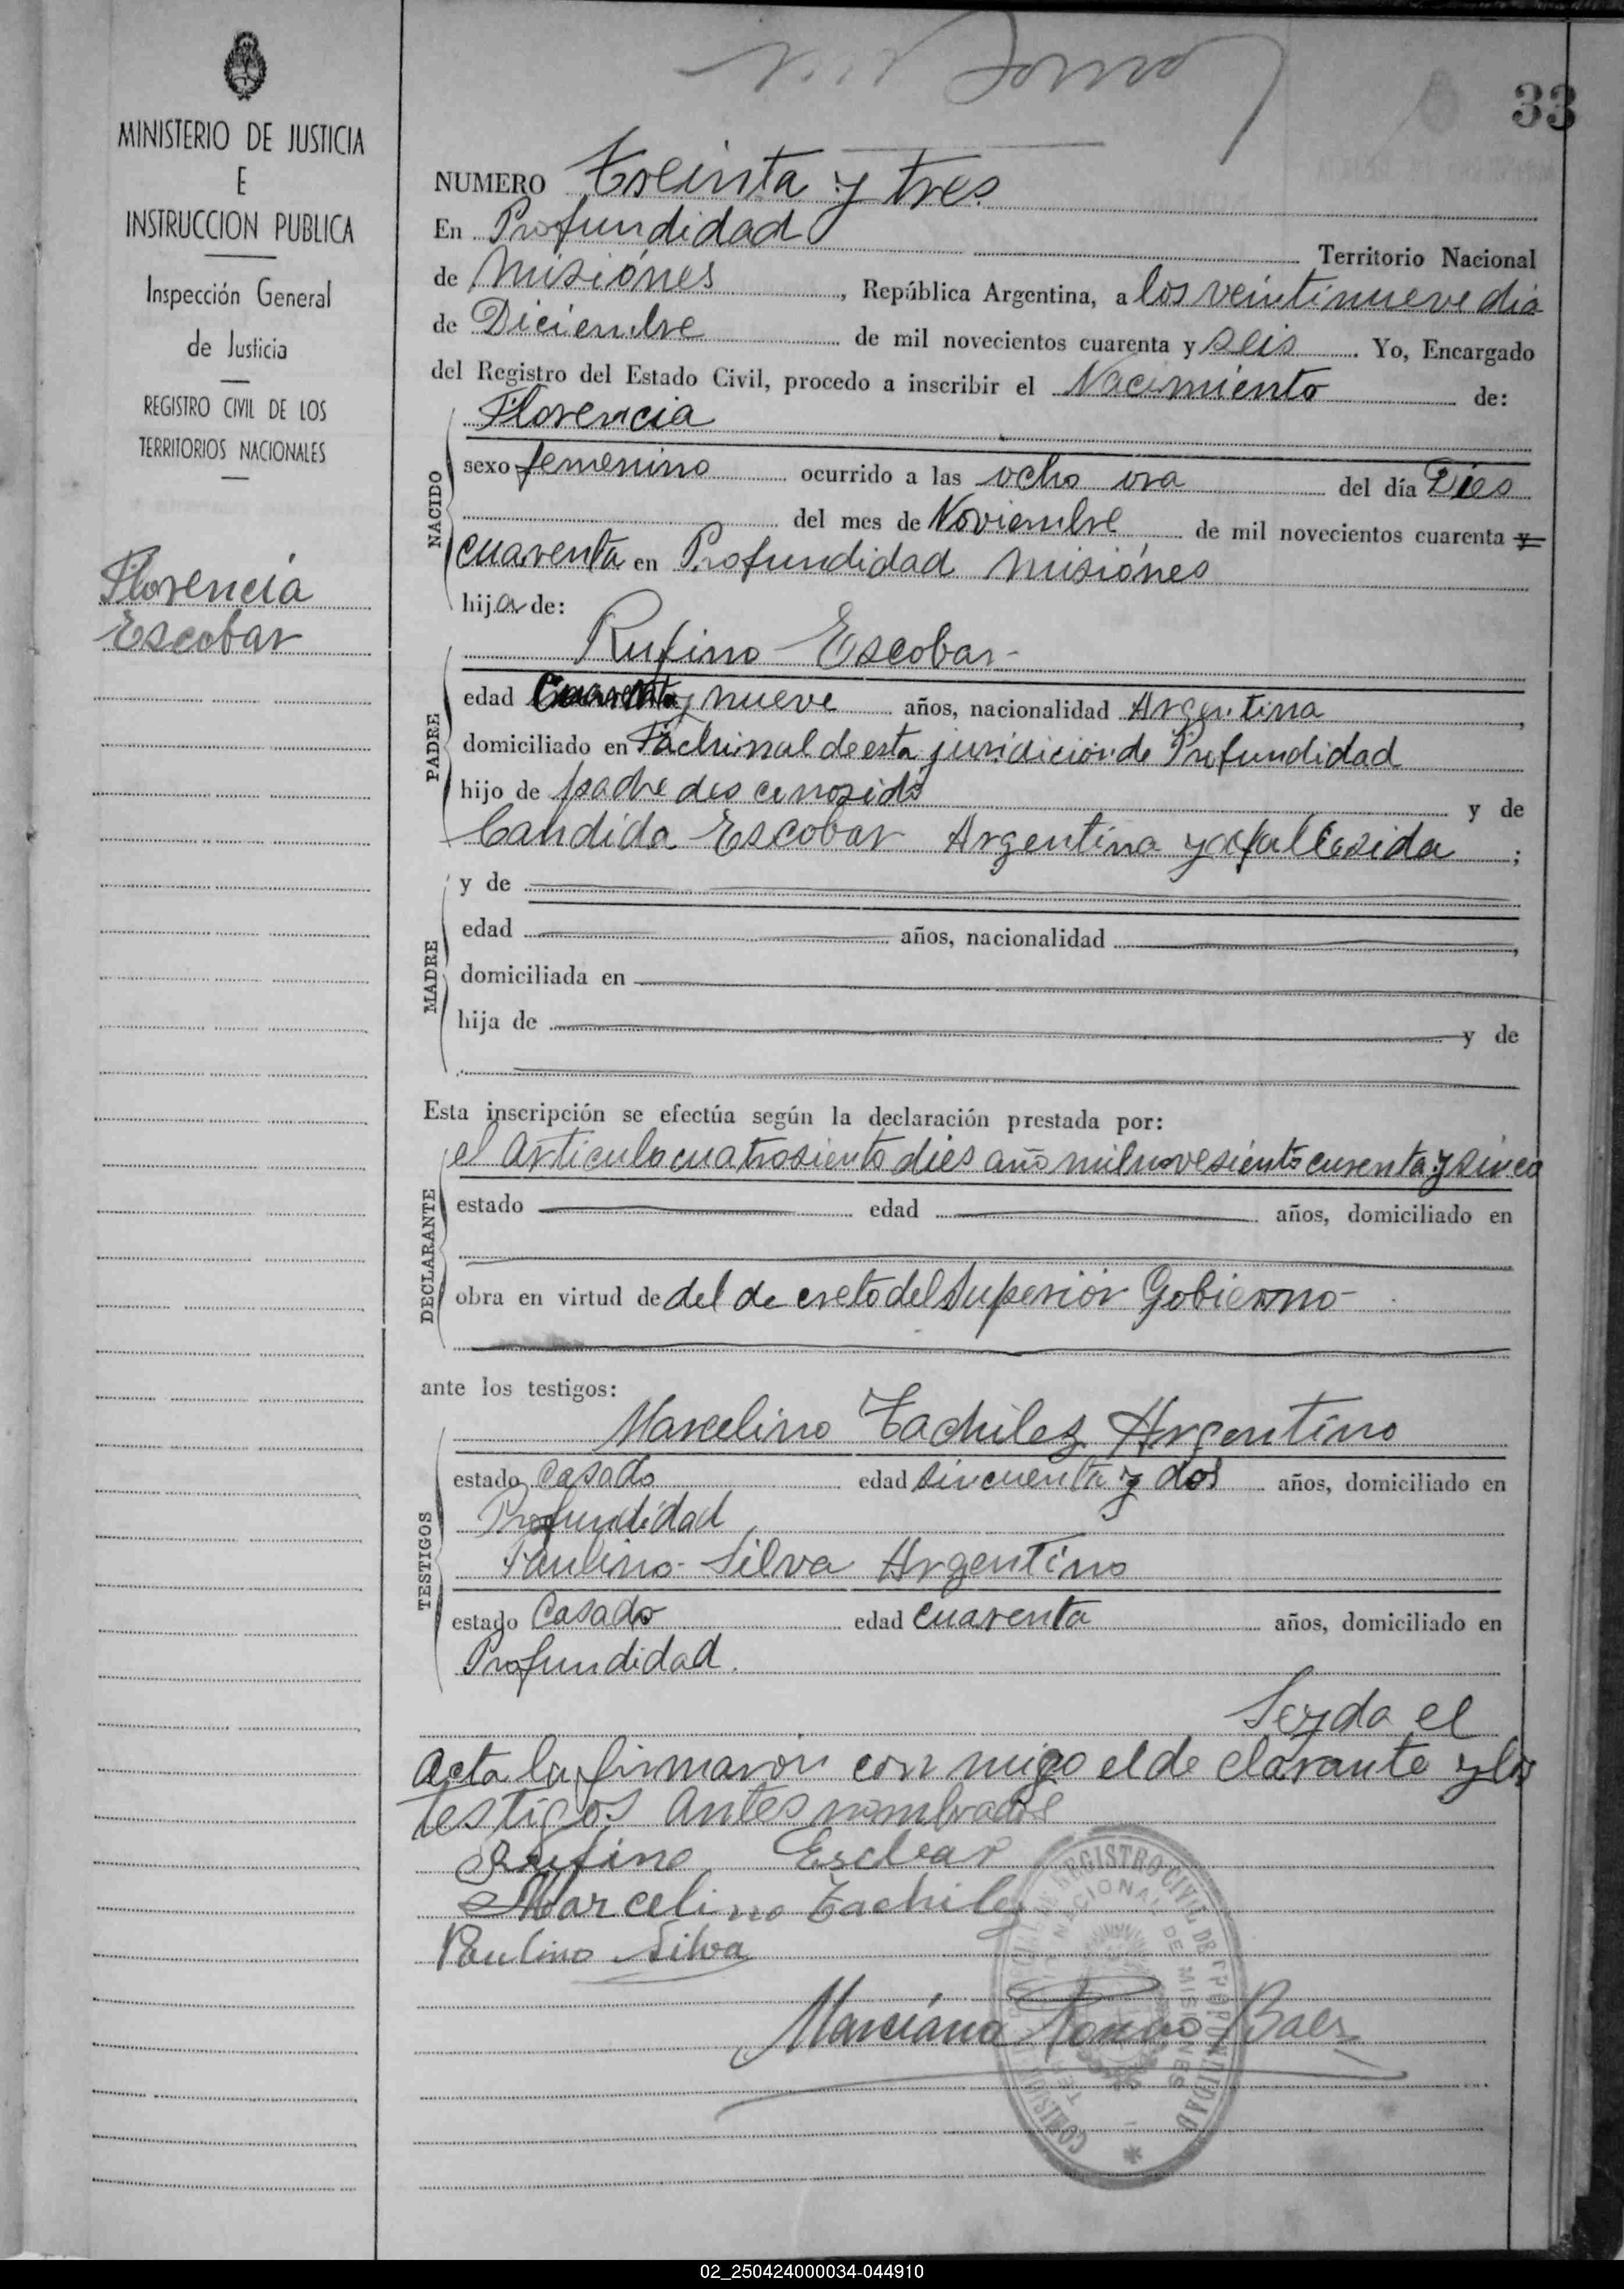 33
MINISTERIO DE JUSTICIA
E
INSTRUCCION PUBLICA
Inspección General
de Justicia
REGISTRO CIVIL DE LOS
TERRITORIOS NACIONALES
Florencia
Escobar
NUMERO Treinta y tres
En Profundidad Territorio Nacional
de Misiónes, República Argentina, a los veintinueve dia
de Diciembre de mil novecientos cuarenta y seis. Yo, Encargado
del Registro del Estado Civil, procedo a inscribir el Nacimiento de:
NACIDO
Florencia
sexo femenino ocurrido a las ocho ora del día Dies
del mes de Noviembre de mil novecientos cuarenta y
cuarenta en Profundidad Misiónes
hija de:
PADRE
Rufino Escobar
edad Cuarenta y nueve años, nacionalidad Argentina,
domiciliado en Pachinal de esta juridicion de Profundidad
hijo de padre des conosido y de
Candida Escobar Argentina ya fallesida;
MADRE
y de
edad años, nacionalidad,
domiciliada en
hija de y de
Esta inscripción se efectúa según la declaración prestada por:
DECLARANTE
el Articulo cuatrosiento dies año mil novesiento curenta y sinco
estado edad años, domiciliado en
obra en virtud de del de creto del Superior Gobierno
ante los testigos:
TESTIGOS
Marcelino Tachilez Argentino
estado casado edad sincuenta y dos años, domiciliado en
Profundidad
Paulino Silva Argentino
estado Casado edad cuarenta años, domiciliado en
Profundidad.
Leyda el
acta la firmaron con migo el de clarante y los
testigos antes nombrados
Rufino Escobar
Marcelino Tachilez
Paulino Silva
Marciano Baez
REGISTRO CIVIL DE PROFUNDIDAD
NACIONAL DE MISIONES
02_250424000034-044910